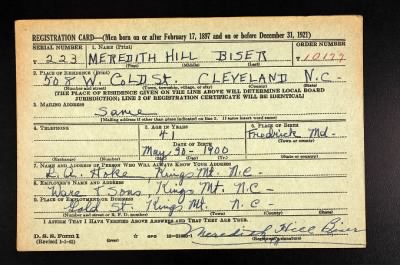 REGISTRATION CARD—(Men born on or after February 17, 1897 and on or before December 31, 1921)
SERIAL NUMBER 1. NAME (Print) ORDER NUMBER
T 223 MEREDITH HILL BISER T 10177
(First) (Middle) (Last)
2. PLACE OF RESIDENCE (Print)
508 W. GOLD St. CLEVELAND N.C-
(Number and street) (Town, township, village, or city) (County) (State)
[THE PLACE OF RESIDENCE GIVEN ON THE LINE ABOVE WILL DETERMINE LOCAL BOARD
JURISDICTION; LINE 2 OF REGISTRATION CERTIFICATE WILL BE IDENTICAL]
3. MAILING ADDRESS
Same
[Mailing address if other than place indicated on line 2. If same insert word same]
4. TELEPHONE 5. AGE IN YEARS 6. PLACE OF BIRTH
41 Fredrick Md-
DATE OF BIRTH (Town or county)
May 30- 1900
(Exchange) (Number) (Mo.) (Day) (Yr.) (State or country)
7. NAME AND ADDRESS OF PERSON WHO WILL ALWAYS KNOW YOUR ADDRESS
Kings Mt. N.C-
8. EMPLOYER'S NAME AND ADDRESS
Ware & Sons, Kings Mt. N.C-
9. PLACE OF EMPLOYMENT OR BUSINESS
Gold St. Kings Mt. N.C-
(Number and street or R. F. D. number) (Town) (County) (State)
I AFFIRM THAT I HAVE VERIFIED ABOVE ANSWERS AND THAT THEY ARE TRUE.
D. S. S. Form 1
(Revised 1-1-42) Meredith Hill Biser
(Registrant's signature)